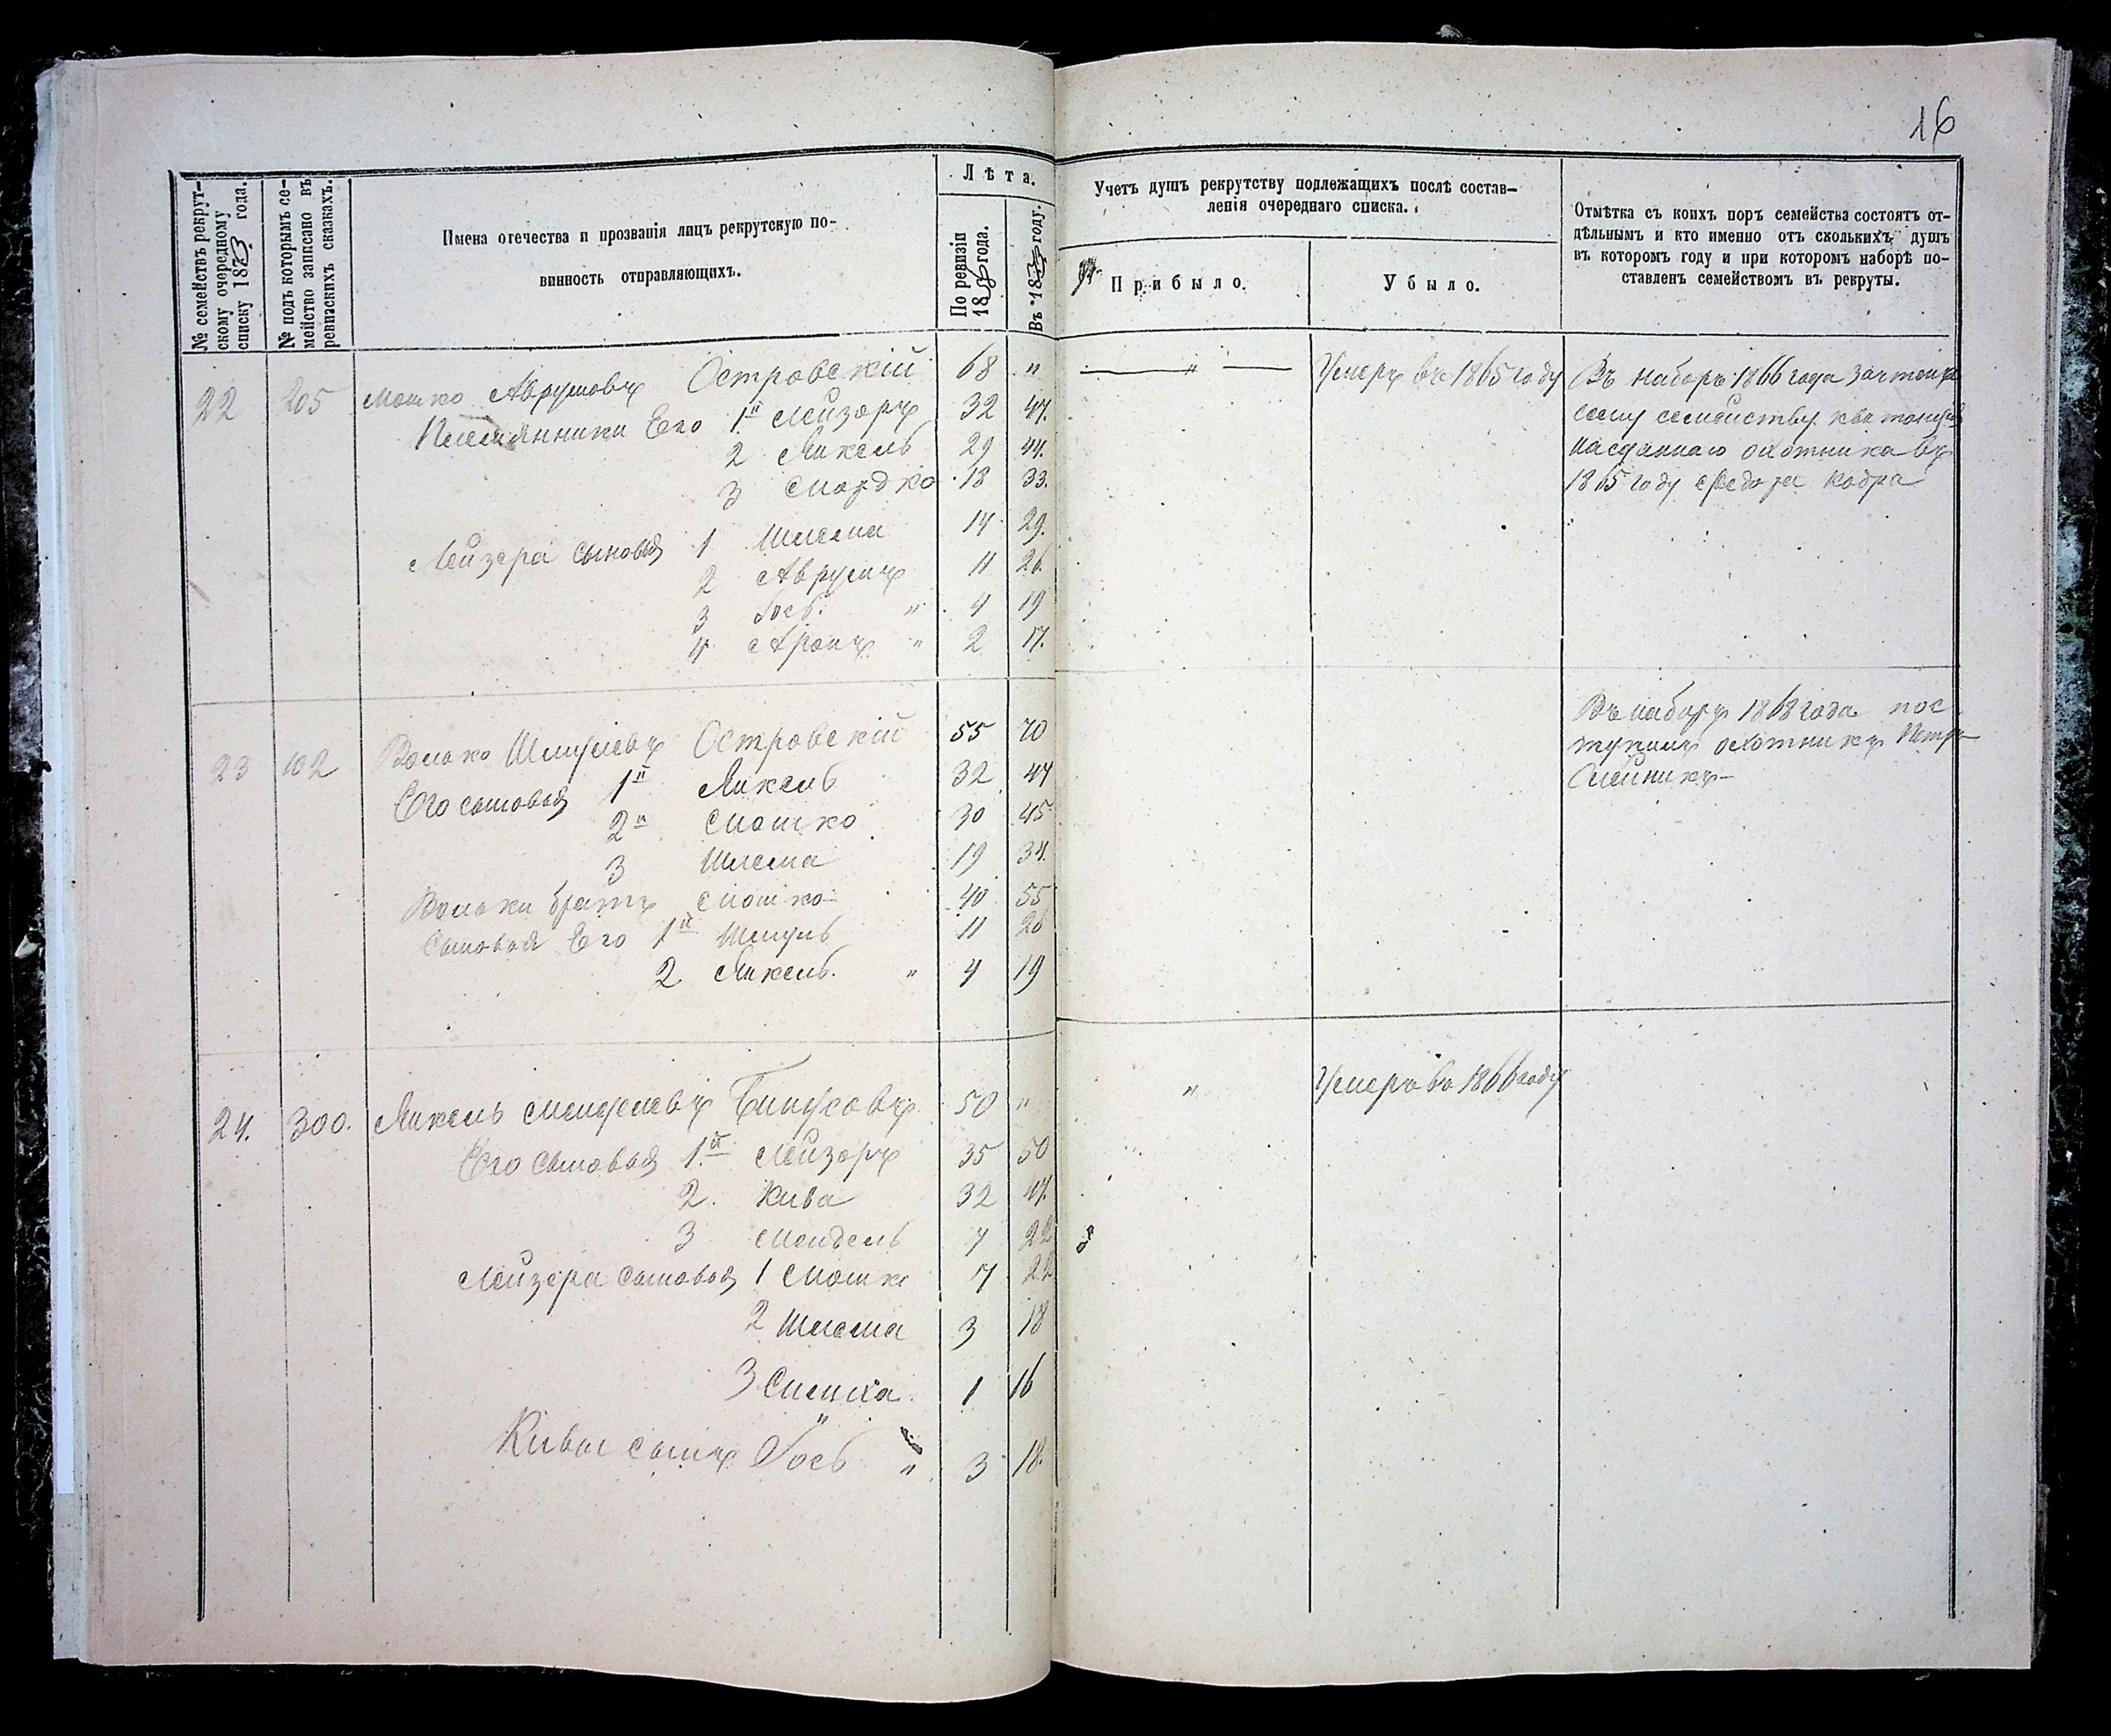 16
№ семействъ рекрут-
скому очередному
списку 1873 года.
№ подъ которымъ се-
мейство записано въ
ревизскихъ сказкахъ.
Имена отечества и прозванія лицъ рекрутскую по-
винность отправляющихъ.
Лѣта.
По ревизіи
1858 года.
Въ 1873 году.
Учетъ душъ рекрутству подлежащихъ послѣ состав-
ленія очереднаго списка.
Прибыло.
Убыло.
Отмѣтка съ коихъ поръ семейства состоятъ от-
дѣльнымъ и кто именно отъ сколькихъ душъ
въ которомъ году и при которомъ наборѣ по-
ставленъ семействомъ въ рекруты.
22 205 Мошко Аврумовъ Островскій 68 " — " — Умеръ въ 1865 году
Племянники Его 1й Лейзоръ 32 47.
2 Янкель 29 44.
3 Мордко 18 33.
Лейзера сыновья 1 Шлема 14 29.
2 Аврумъ 11 26.
3 Іось " 4 19
4 Аронъ " 2 17.
Въ наборъ 1866 года зачтена
сему семейству квитанція
на сданнаго охотника въ
1865 году Федора Кобра
23 102 Волько Шмулевъ Островскій 55 70
Его сыновья 1й Янкель 32 47
2й Мошко 30 45
3 Шлема 19 34.
Вольки братъ Мошко 40 55
Сыновья Его 1й Шмуль 11 26
2 Янкель. " 4 19
Въ наборъ 1868 года пос
тупилъ охотникъ Петръ
Олейникъ
24. 300. Янкель Шмулевъ 50 " " Умеръ въ 1866 году
Его сыновья 1й Лейзоръ 35 50
2. Кива 32 47.
3 Мендель 7 22
Лейзера сыновья 1 Мошко 7 22
2 Шлема 3 18
3 Симха 1 16
Кивы сынъ Іось " 3 18.